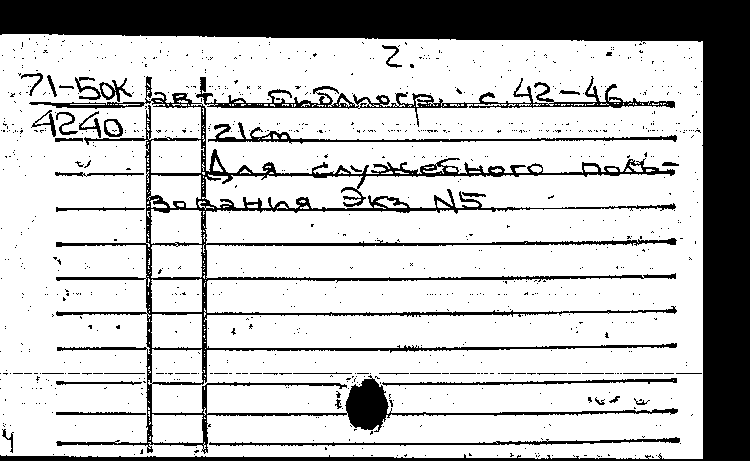 2.
71-50К авт. и библиогр. с 42-46.
4240 21см.
Для служебного поль-
зования. Экз N5.
4